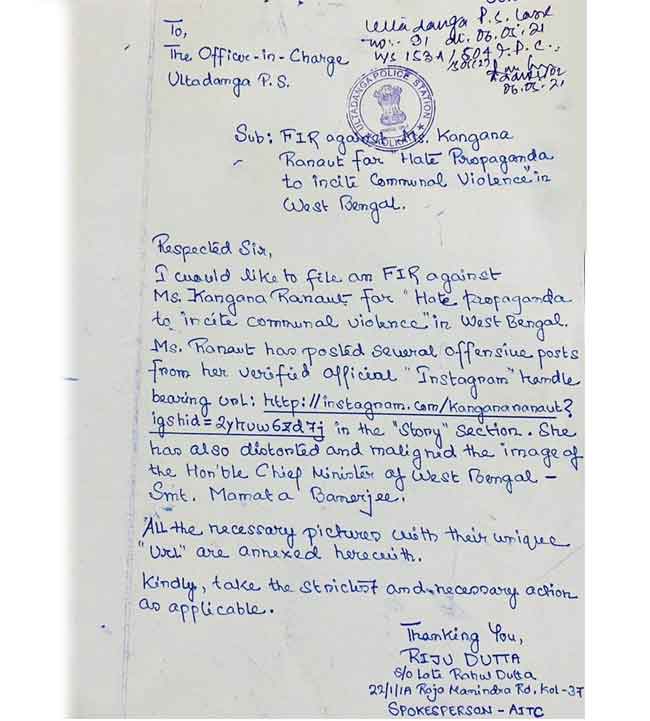 To,
The Officer-in-Charge
Ultadanga P.S.
Ultadanga P.S. Case
no:- 91 dt. 06.05.21
U/S 153A/504 I.P.C.
06.05.21
ULTADANGA POLICE STATION
KOLKATA
Sub: FIR against Ms. Kangana
Ranaut for "Hate Propaganda
to incite Communal Violence" in
West Bengal.
Respected Sir,
I would like to file an FIR against
Ms. Kangana Ranaut for "Hate propaganda
to incite communal violence" in West Bengal.
Ms. Ranaut has posted several offensive posts
from her verified official "Instagram" handle
bearing URL: http://instagram.com/kanganaranaut?
igshid=2yhvw6xd7j in the "Story" section. She
has also distorted and maligned the image of
the Hon'ble Chief Minister of West Bengal -
Smt. Mamata Banerjee.
All the necessary pictures with their unique
"URL" are annexed herewith.
Kindly, take the strictest and necessary action
as applicable.
Thanking You,
RIJU DUTTA
S/o Late Rahul Dutta
22/1/1A Raja Manindra Rd, Kol-37
SPOKESPERSON - AITC